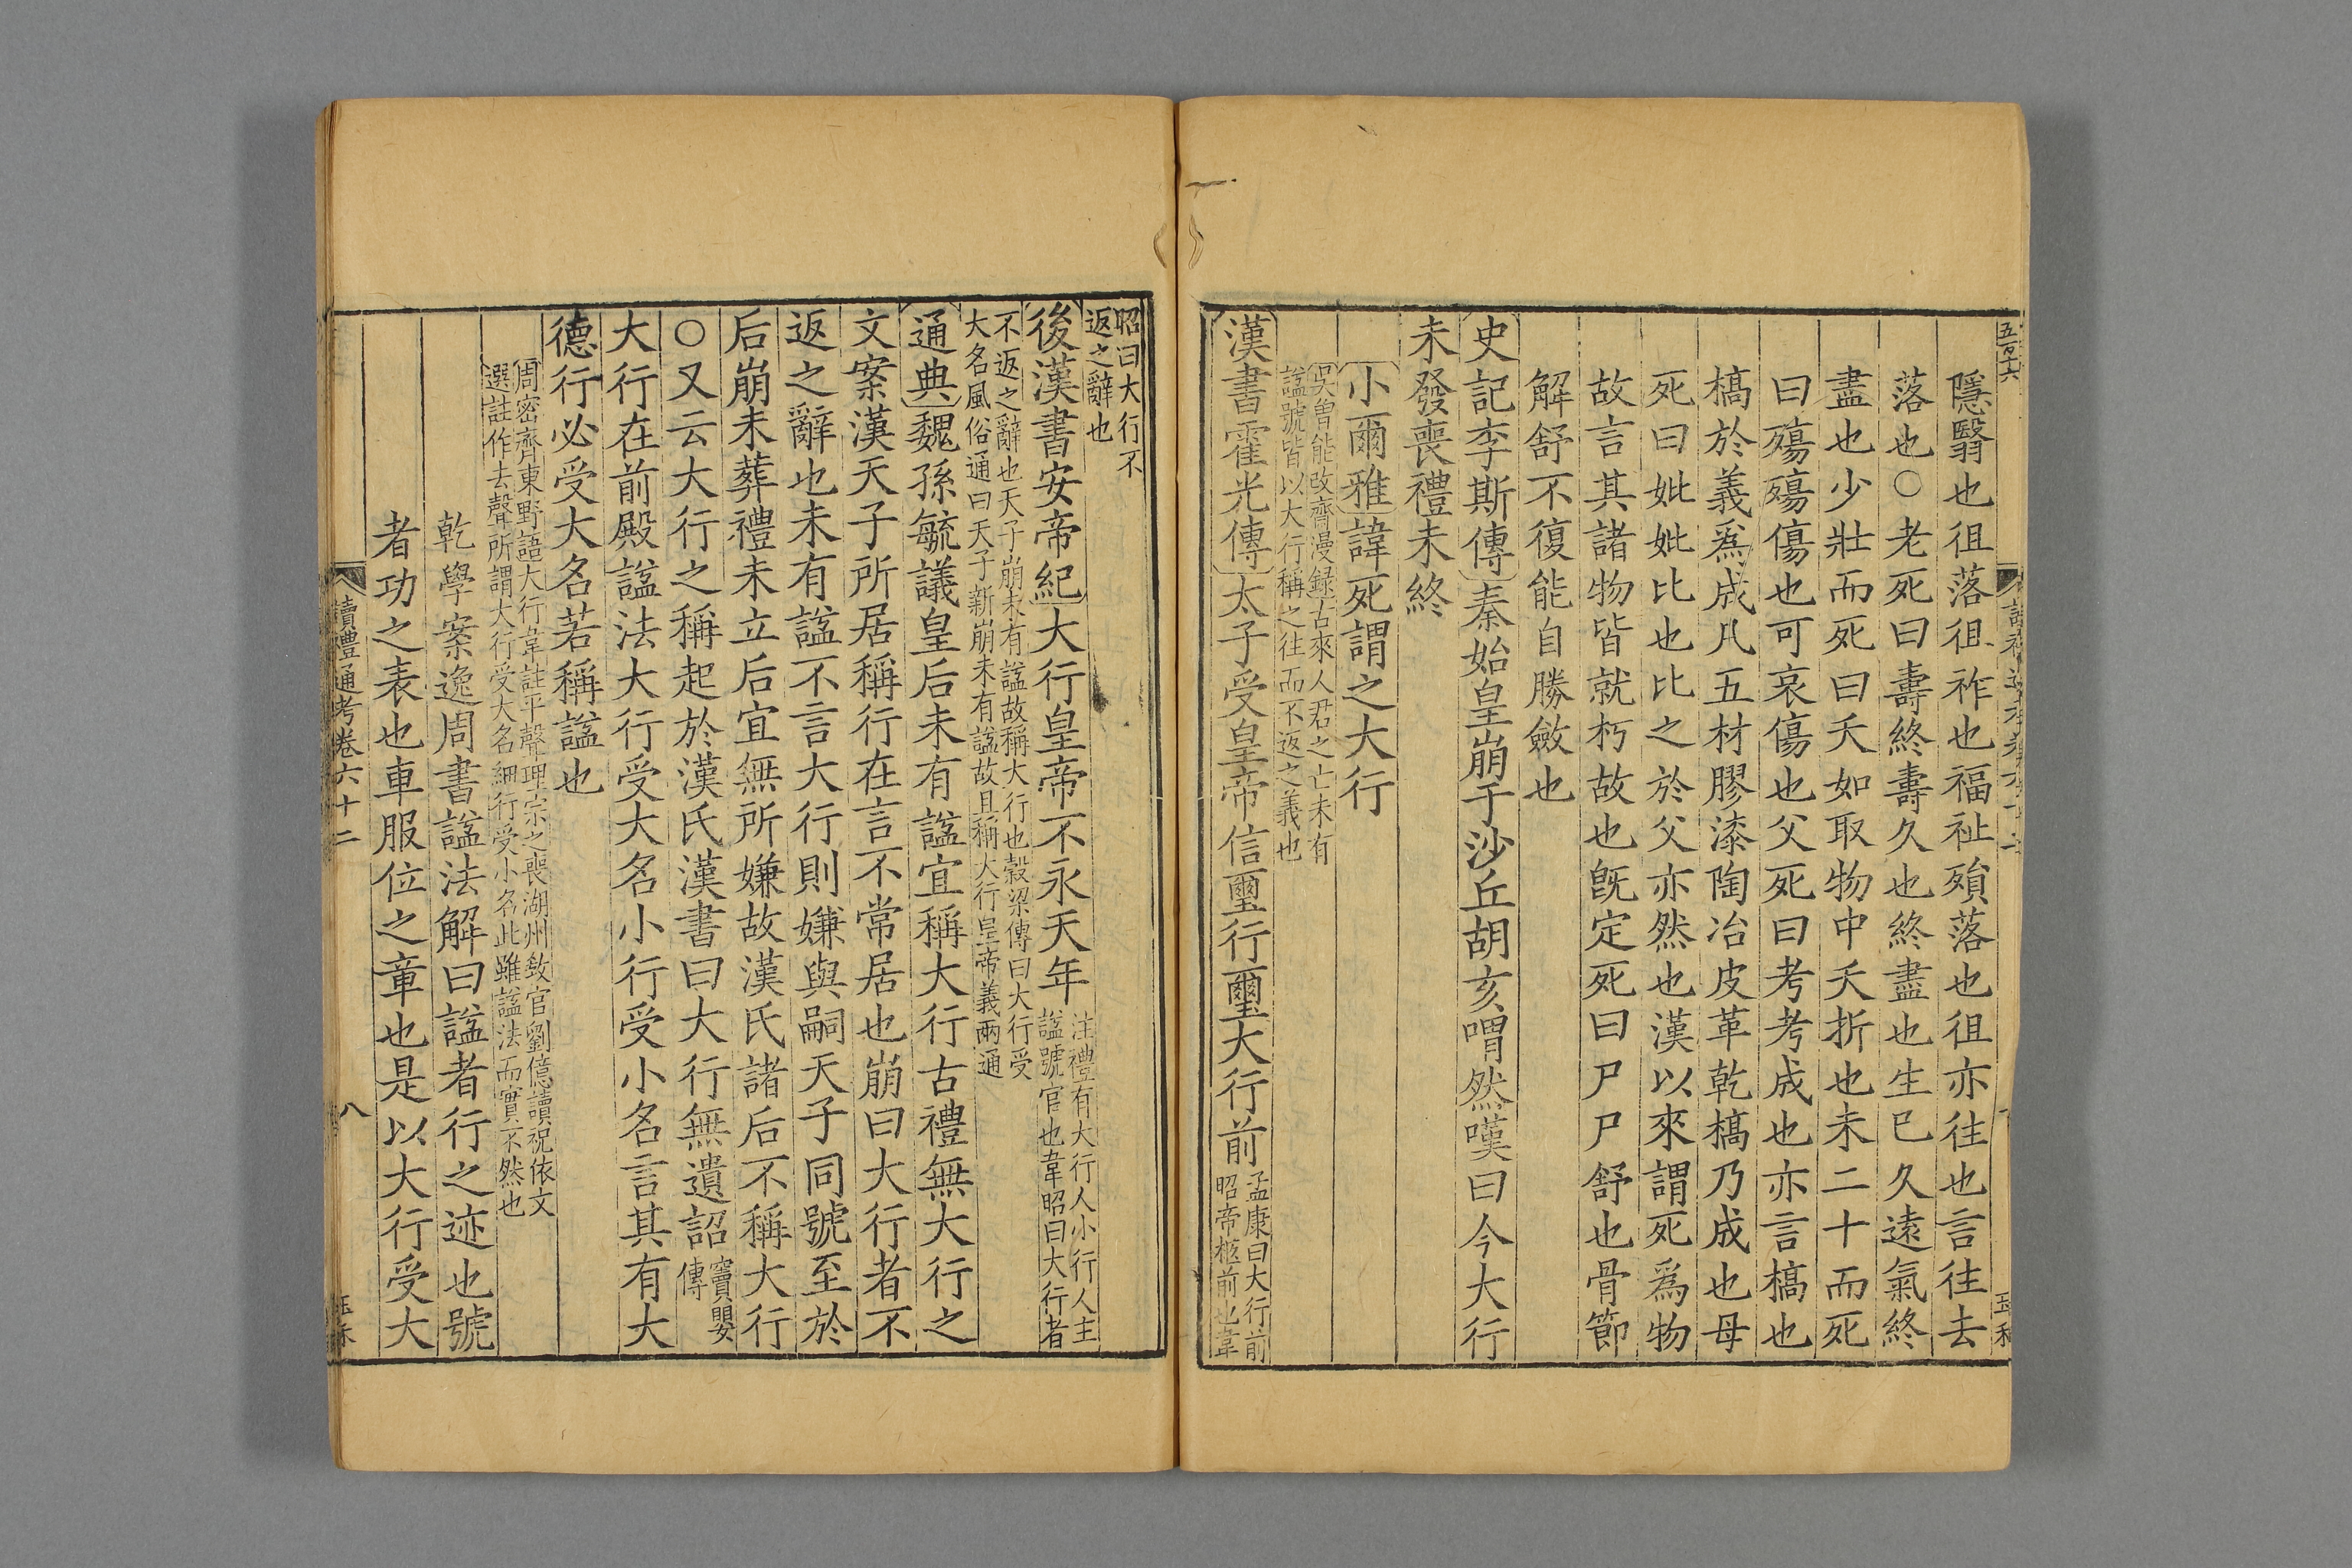 五百十六
隱翳也徂落徂祚也福祉殞落也徂亦往也言往去
落也○老死曰壽終壽久也終盡也生已久遠氣終
盡也少壯而死曰夭如取物中夭折也未二十而死
曰殤殤傷也可哀傷也父死曰考考成也亦言槁也
槁於義爲成凡五材膠漆陶冶皮革乾槁乃成也母
死曰妣妣比也比之於父亦然也漢以來謂死爲物
故言其諸物皆就朽故也旣定死曰尸尸舒也骨節
解舒不復能自勝斂也
史記李斯傳秦始皇崩于沙丘胡亥喟然嘆曰今大行
未發喪禮未終
小爾雅諱死謂之大行
吴曾能改齊漫録古來人君之亡未有
諡號皆以大行稱之往而不返之義也
漢書霍光傳太子受皇帝信璽行璽大行前
孟康曰大行前
昭帝柩前也韋
昭曰大行不
返之辭也
後漢書安帝紀大行皇帝不永天年
注禮有大行人小行人主
諡號官也韋昭曰大行者
不返之辭也天子崩未有諡故稱大行也穀梁傳曰大行受
大名風俗通曰天子新崩未有諡故且稱大行皇帝義兩通
通典魏孫毓議皇后未有諡宜稱大行古禮無大行之
文案漢天子所居稱行在言不常居也崩曰大行者不
返之辭也未有諡不言大行則嫌與嗣天子同號至於
后崩未葬禮未立后宜無所嫌故漢氏諸后不稱大行
○又云大行之稱起於漢氏漢書曰大行無遺詔
竇嬰
傳
大行在前殿諡法大行受大名小行受小名言其有大
德行必受大名若稱諡也
周密齊東野語大行韋註平聲理宗之喪湖州敎官劉億讀祝依文
選註作去聲所謂大行受大名細行受小名此雖諡法而實不然也
乾學案逸周書諡法解曰諡者行之迹也號
者功之表也車服位之章也是以大行受大
讀禮通考卷六十二
八